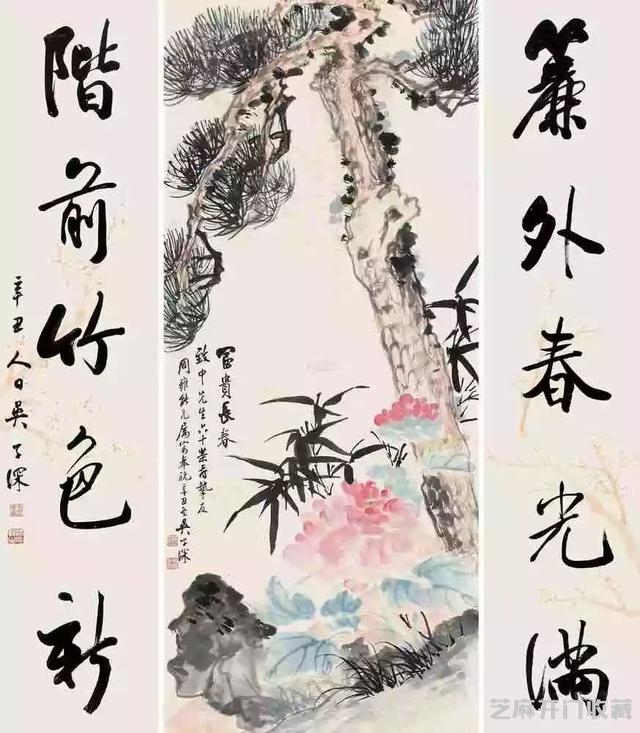 簾外春光滿
富貴長春
致中先生六十榮壽摯友
兄屬寫奉祝辛丑吳子深
階前竹色新
辛丑人日吳子深
芝麻开门收藏